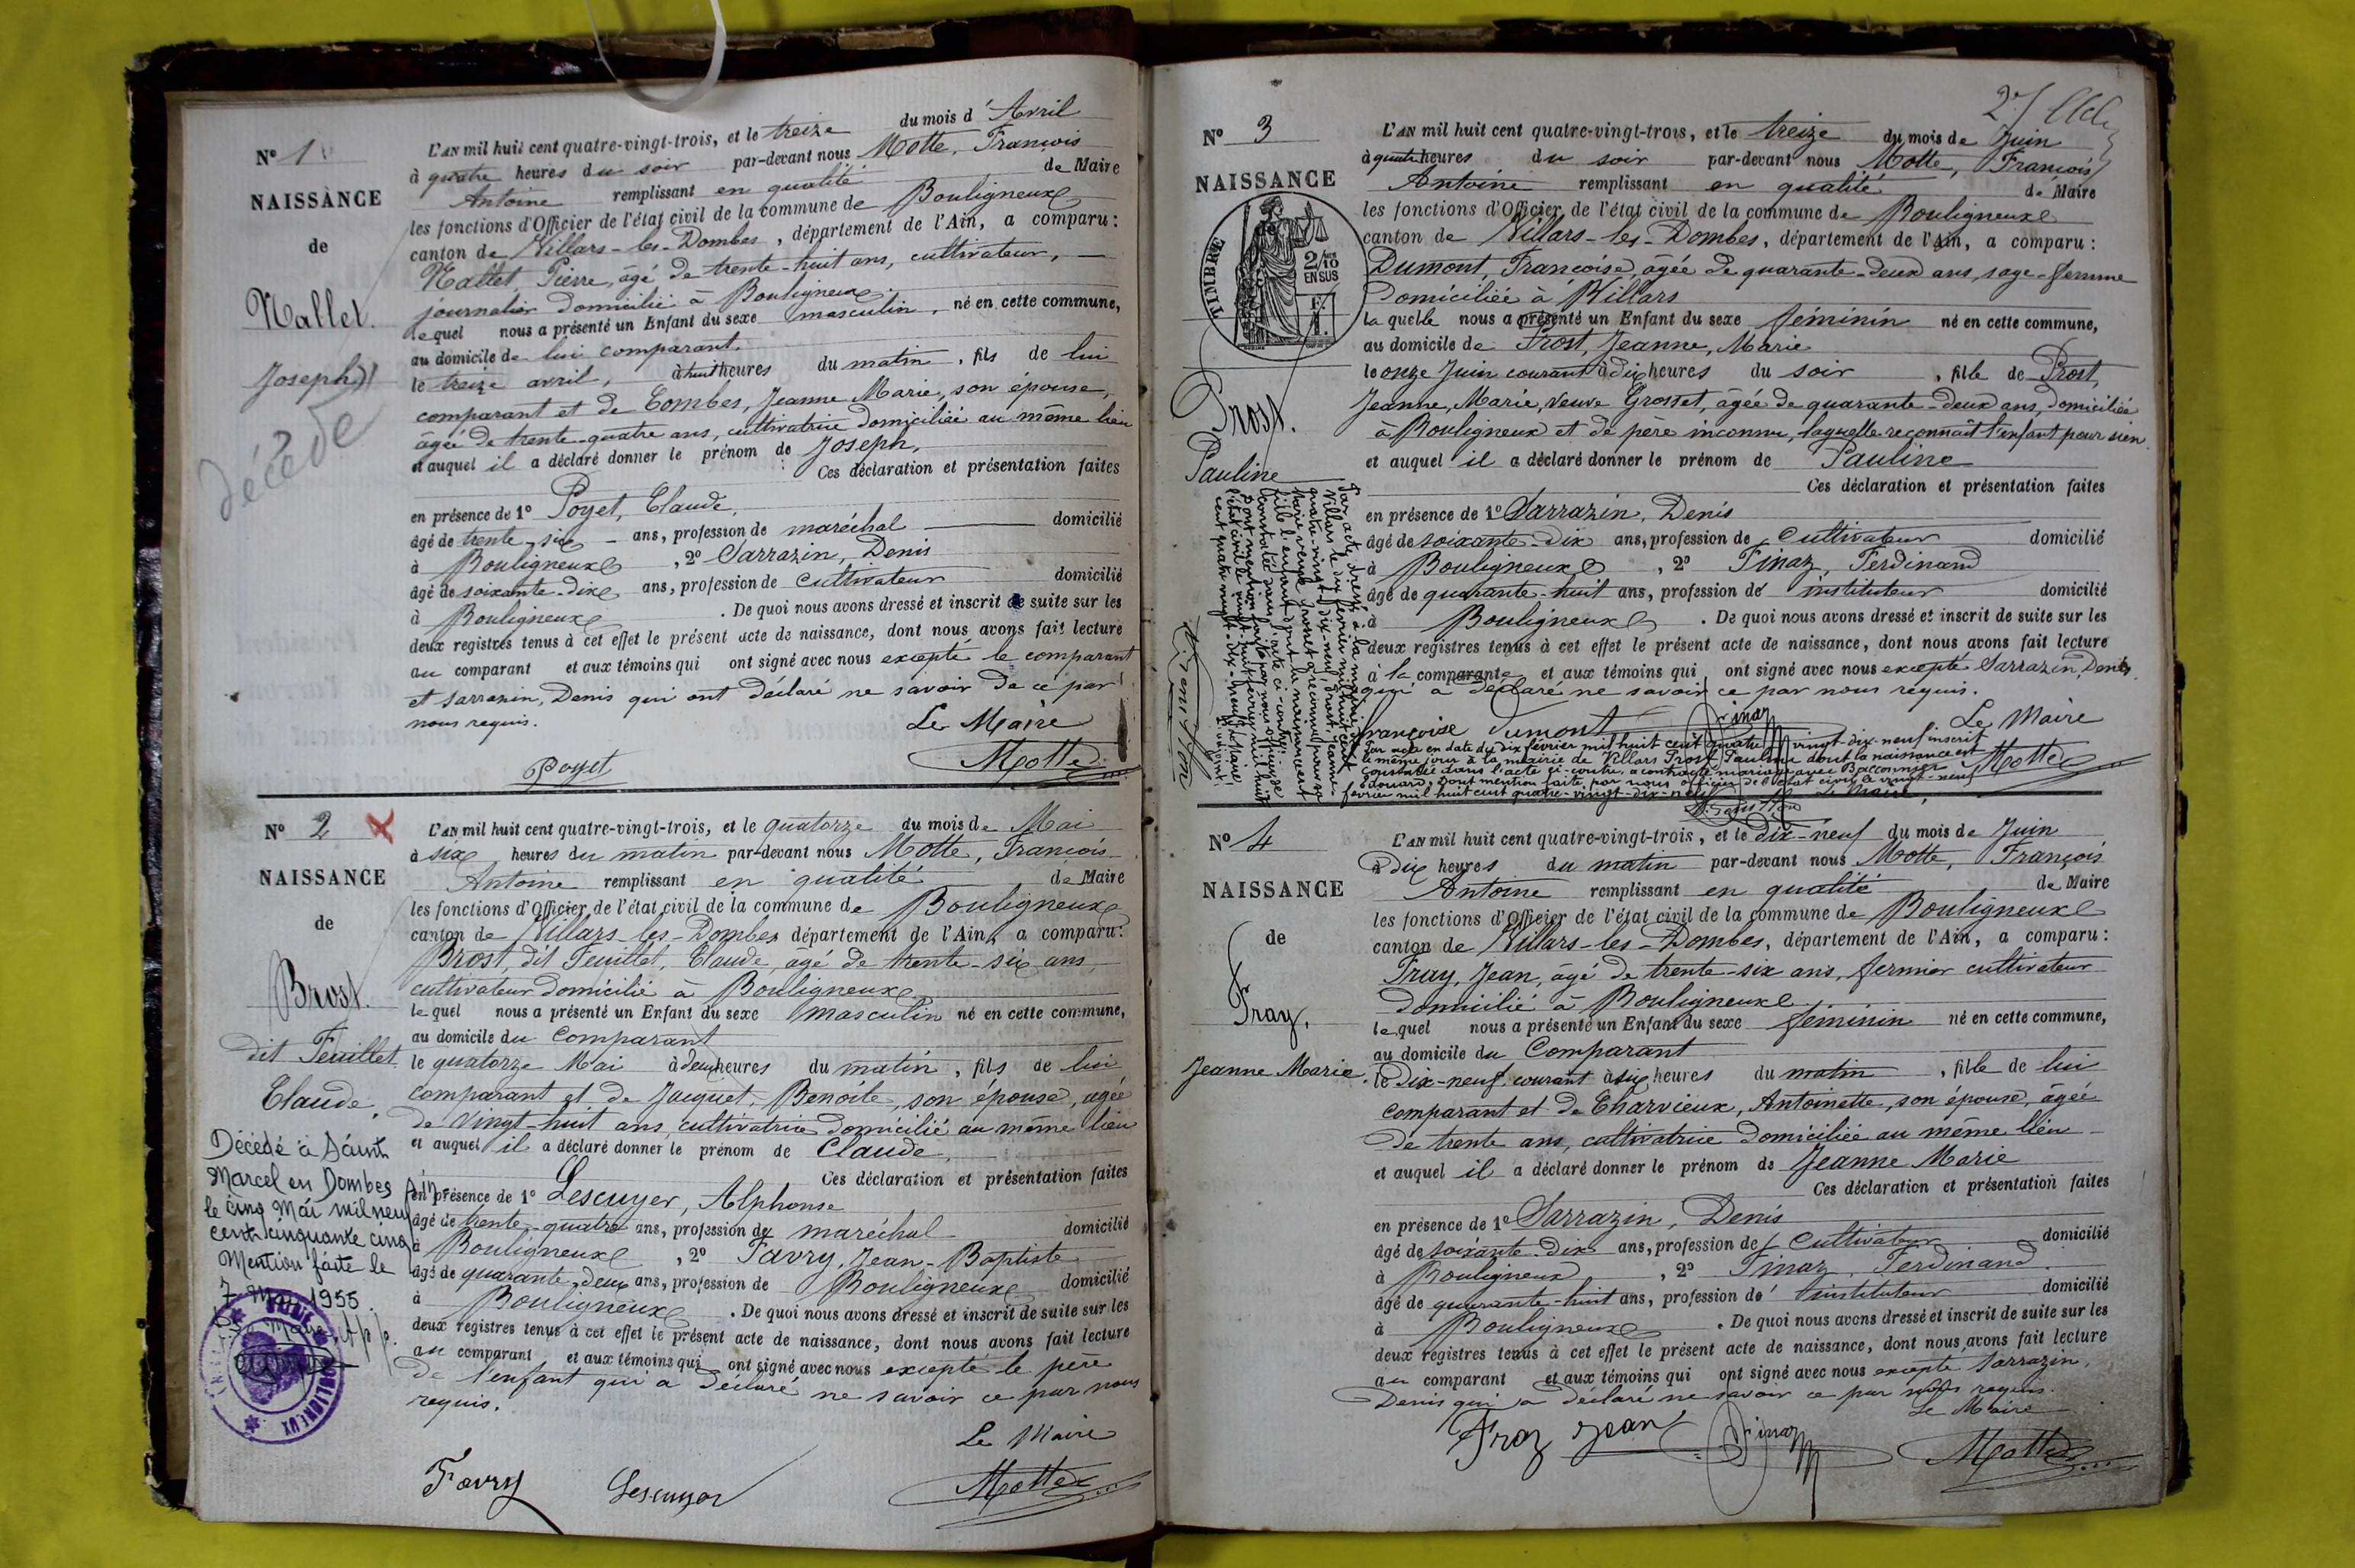 Nº 1
NAISSANCE
de
Nallet.
Joseph
décédé
L'AN mil huit cent quatre-vingt-trois, et le treize du mois d'Avril
à quatre heures du soir par-devant nous Motte, François
Antoine remplissant en qualité de Maire
les fonctions d'Officier de l'état civil de la commune de Bouligneux
canton de Villars-les-Dombes, département de l'Ain, a comparu:
Nallet, Pierre, âgé de trente-huit ans, cultivateur,
journalier domicilié à Bouligneux.
lequel nous a présenté un Enfant du sexe masculin, né en cette commune,
au domicile de lui comparant.
le treize avril, à huit heures du matin, fils de lui
comparant et de Combes, Jeanne Marie, son épouse,
âgée de trente-quatre ans, cultivatrice domiciliée au même lieu
et auquel il a déclaré donner le prénom de Joseph.
Ces déclaration et présentation faites
en présence de 1º Poyet, Claude,
âgé de trente-six ans, profession de maréchal domicilié
à Bouligneux, 2º Sarrazin, Denis
âgé de soixante-dix ans, profession de cultivateur domicilié
à Bouligneux. De quoi nous avons dressé et inscrit de suite sur les
deux registres tenus à cet effet le présent acte de naissance, dont nous avons fait lecture
au comparant et aux témoins qui ont signé avec nous excepté le comparant
et Sarrazin, Denis qui ont déclaré ne savoir de ce par
nous requis.
Le Maire
Poyet
Motte
Nº 2 X
NAISSANCE
de
Brost.
dit Feuillet
Claude.
Décédé à Saint
Marcel en Dombes Ain
le cinq Mai mil neuf
cent cinquante cinq
Mention faite le
7 Mai 1955
Le Maire,
BOULIGNEUX
L'AN mil huit cent quatre-vingt-trois, et le quatorze du mois de Mai
à six heures du matin par-devant nous Motte, François
Antoine remplissant en qualité de Maire
les fonctions d'Officier de l'état civil de la commune de Bouligneux
canton de Villars-les-Dombes département de l'Ain, a comparu:
Brost, dit Feuillet, Claude, âgé de trente-six ans
cultivateur domicilié à Bouligneux
lequel nous a présenté un Enfant du sexe masculin né en cette commune,
au domicile du comparant
le quatorze Mai à deux heures du matin, fils de lui
comparant et de Jacquet, Benoîte, son épouse, âgée
de vingt-huit ans, cultivatrice domicilié au même lieu
et auquel il a déclaré donner le prénom de Claude.
Ces déclaration et présentation faites
en présence de 1º Lescuyer, Alphonse
âgé de trente-quatre ans, profession de maréchal domicilié
à Bouligneux, 2º Favry, Jean-Baptiste
âgé de quarante-deux ans, profession de Bouligneux domicilié
à Bouligneux. De quoi nous avons dressé et inscrit de suite sur les
deux registres tenus à cet effet le présent acte de naissance, dont nous avons fait lecture
au comparant et aux témoins qui ont signé avec nous excepté le père
de l'enfant qui a déclaré ne savoir ce par nous
requis.
Le Maire
Favry Lescuyer Motte
27
Nº 3
NAISSANCE
TIMBRE
2/10 EN SUS
Prost.
Pauline
L'AN mil huit cent quatre-vingt-trois, et le treize du mois de Juin
à quatre heures du soir par-devant nous Motte, François
Antoine remplissant en qualité de Maire
les fonctions d'Officier de l'état civil de la commune de Bouligneux
canton de Villars-les-Dombes, département de l'Ain, a comparu:
Dumont, Françoise, âgée de quarante-deux ans, sage-femme
domiciliée à Villars
laquelle nous a présenté un Enfant du sexe féminin né en cette commune,
au domicile de Prost, Jeanne, Marie
le onze Juin courant à dix heures du soir, fille de Prost,
Jeanne, Marie, veuve Grosset, âgée de quarante-deux ans, domiciliée
à Bouligneux et de père inconnu, laquelle reconnaît l'enfant pour sien
et auquel il a déclaré donner le prénom de Pauline
Ces déclaration et présentation faites
en présence de 1º Sarrazin, Denis
âgé de soixante-dix ans, profession de cultivateur domicilié
à Bouligneux, 2º Finaz, Ferdinand
âgé de quarante-huit ans, profession de instituteur domicilié
à Bouligneux. De quoi nous avons dressé et inscrit de suite sur les
deux registres tenus à cet effet le présent acte de naissance, dont nous avons fait lecture
à la comparante et aux témoins qui ont signé avec nous excepté Sarrazin, Denis
qui a déclaré ne savoir ce par nous requis.
Françoise Dumont Finaz Le Maire
Motte
Par acte en date du dix février mil huit cent quatre-vingt-dix-neuf inscrit
le même jour à la mairie de Villars Prost Pauline dont la naissance est
constatée dans l'acte ci-contre, a contracté mariage avec Baconnier
Edouard, Dont mention faite par nous officier de l'état civil le vingt-neuf
février mil huit cent quatre-vingt-dix-neuf Le Maire,
Nº 4
NAISSANCE
de
Fray.
Jeanne Marie.
L'AN mil huit cent quatre-vingt-trois, et le dix-neuf du mois de Juin
à dix heures du matin par-devant nous Motte, François
Antoine remplissant en qualité de Maire
les fonctions d'Officier de l'état civil de la commune de Bouligneux
canton de Villars-les-Dombes, département de l'Ain, a comparu:
Fray, Jean, âgé de trente-six ans, fermier cultivateur
domicilié à Bouligneux.
lequel nous a présenté un Enfant du sexe féminin né en cette commune,
au domicile du Comparant
le dix-neuf courant à six heures du matin, fille de lui
comparant et de Charvieux, Antoinette, son épouse, âgée
de trente ans, cultivatrice domiciliée au même lieu
et auquel il a déclaré donner le prénom de Jeanne Marie
Ces déclaration et présentation faites
en présence de 1º Sarrazin, Denis
âgé de soixante-dix ans, profession de cultivateur domicilié
à Bouligneux, 2º Finaz, Ferdinand.
âgé de quarante-huit ans, profession de instituteur domicilié
à Bouligneux. De quoi nous avons dressé et inscrit de suite sur les
deux registres tenus à cet effet le présent acte de naissance, dont nous avons fait lecture
au comparant et aux témoins qui ont signé avec nous excepté Sarrazin,
Denis qui a déclaré ne savoir ce par nous requis.
Le Maire
Fray Jean Finaz Motte